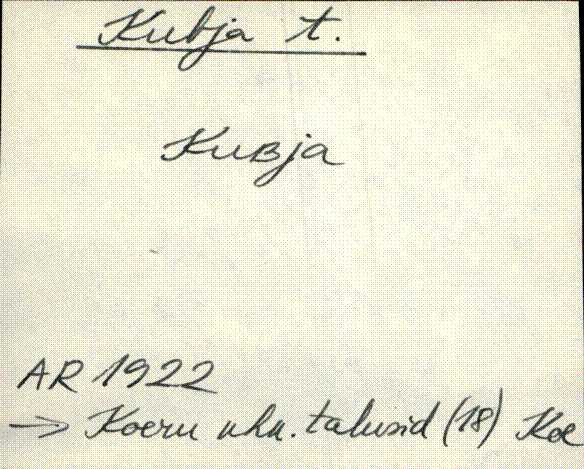 Kubja t.
Kuʙja
AR 1922
→ Koeru khk. talusid (18) Koe